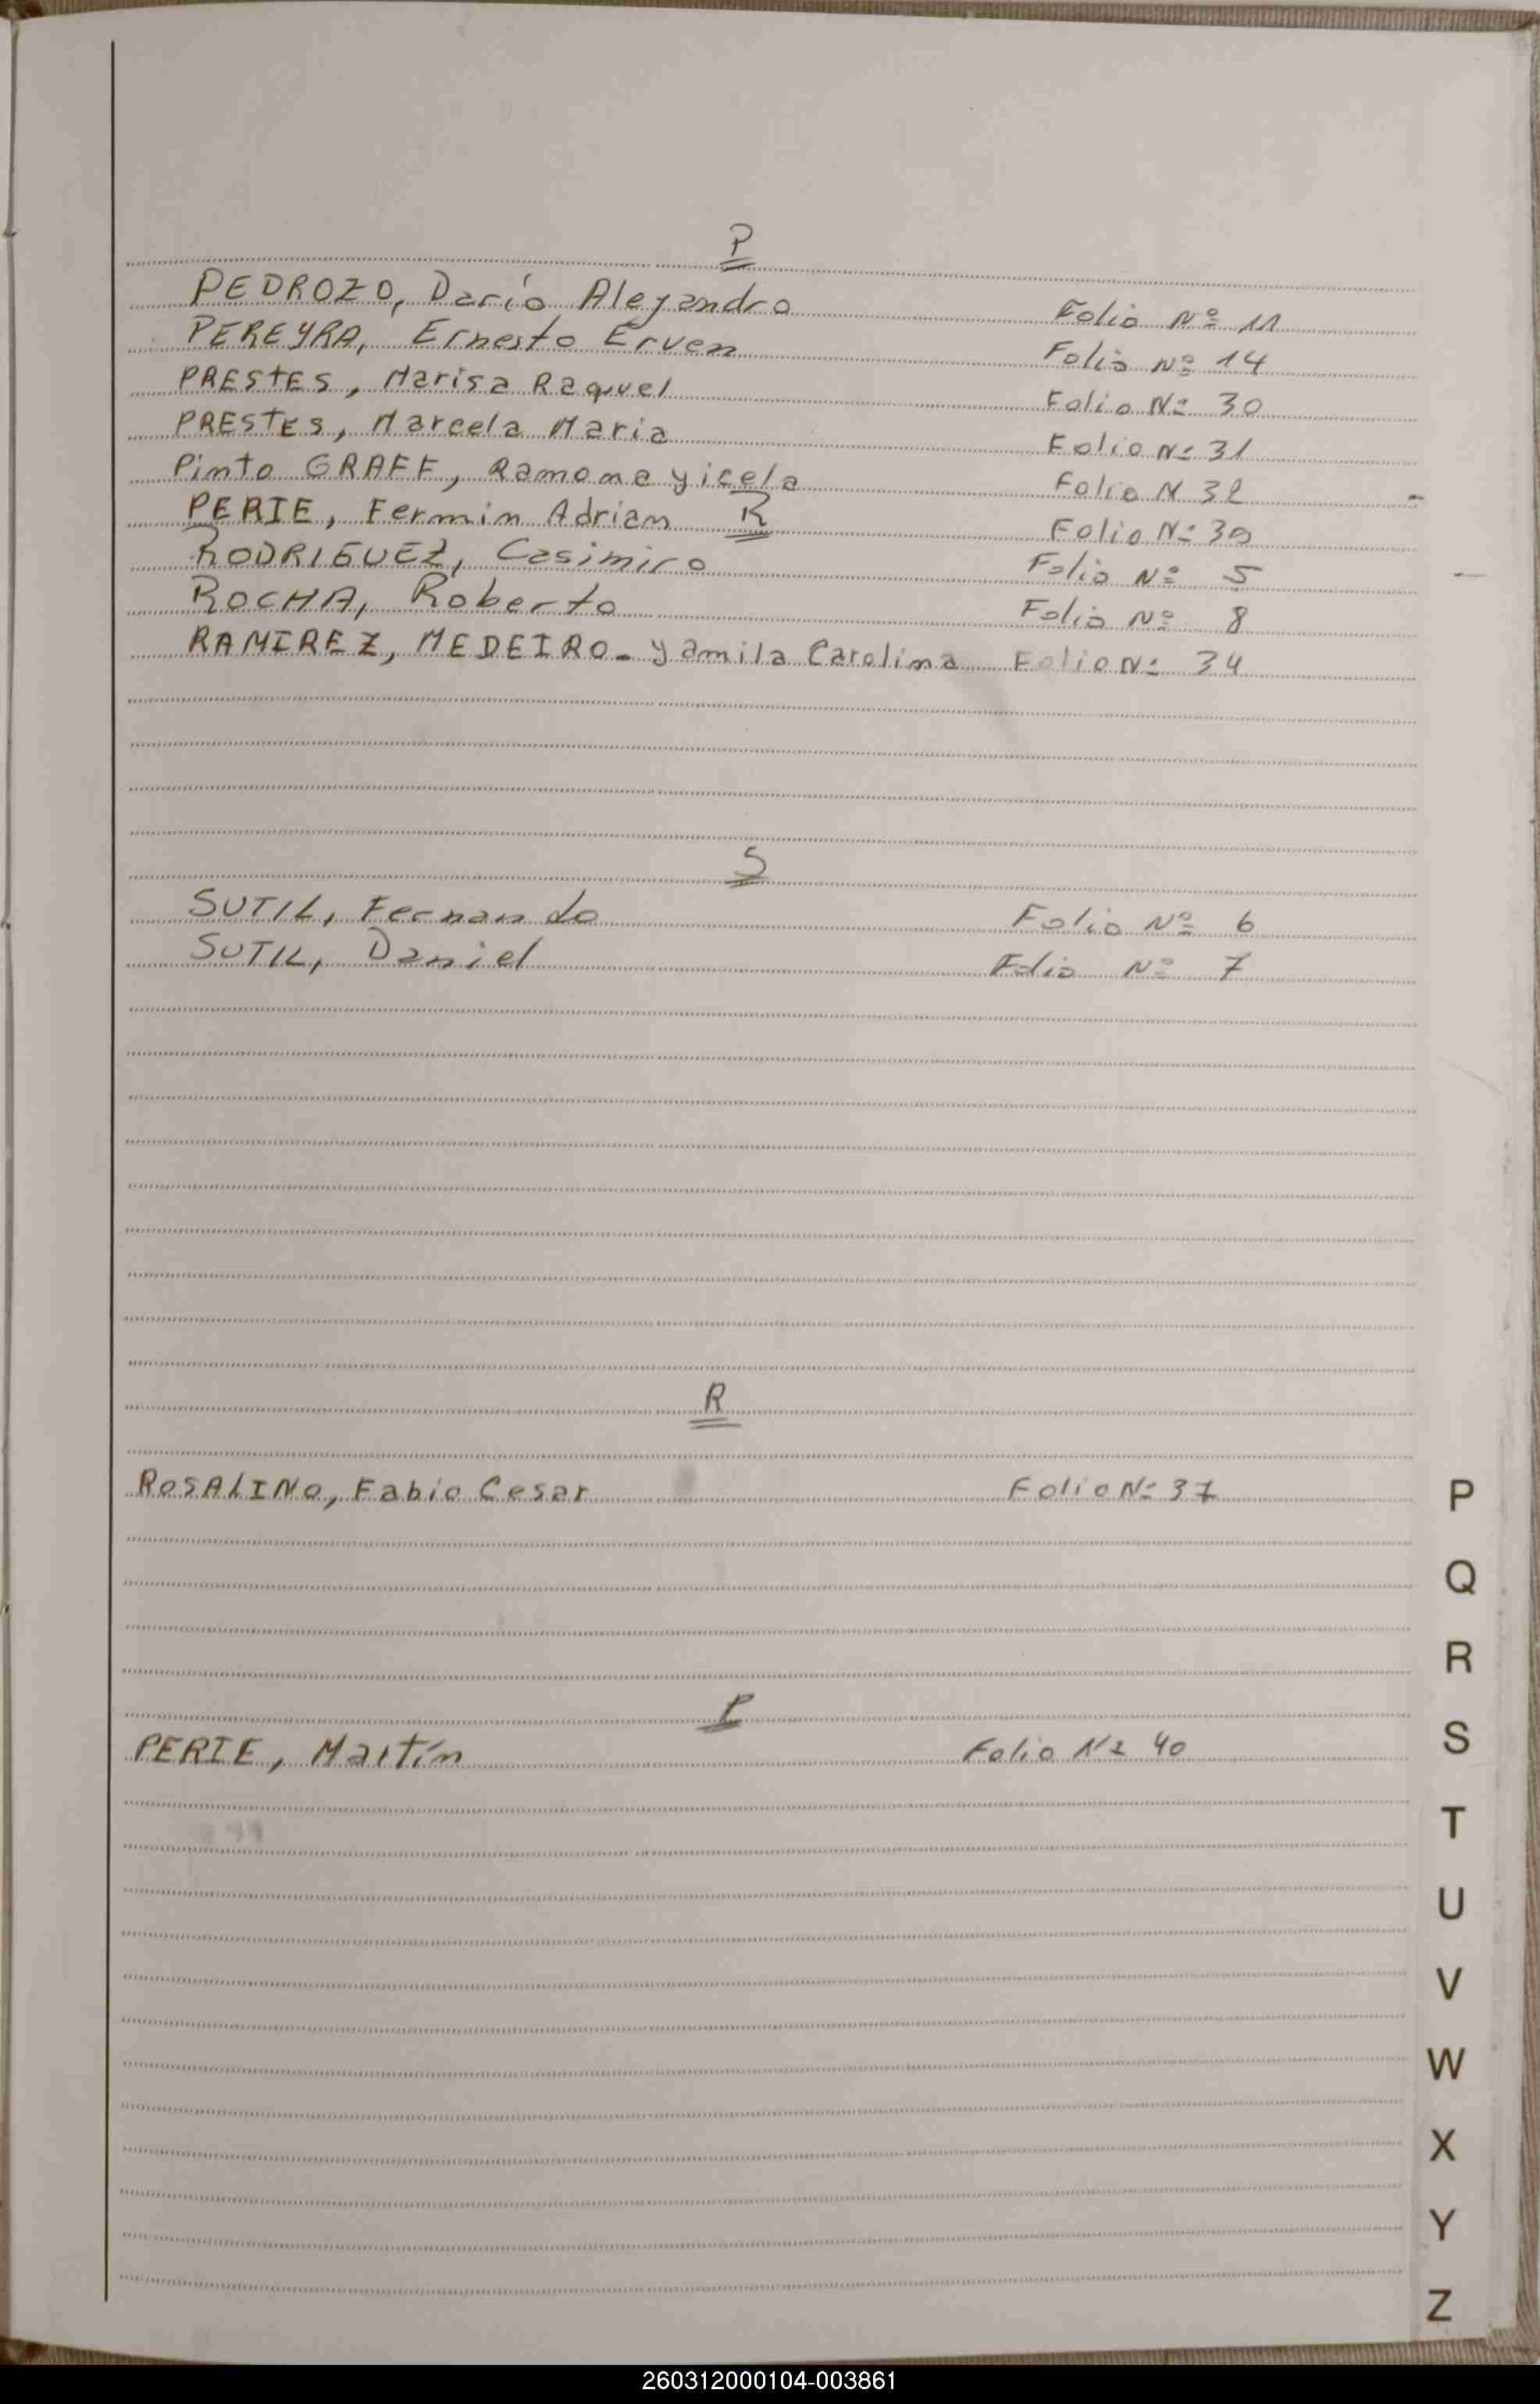 P
PEDROZO, Darío Alejandro Folio Nº 11
PEREYRA, Ernesto Erven Folio Nº 14
PRESTES, Marisa Raquel Folio Nº 30
PRESTES, Marcela Maria Folio Nº 31
Pinto GRAFF, Ramona yicela Folio N 32
PERIE, Fermin Adrian Folio Nº 39
R
RODRIGUEZ, Casimiro Folio Nº 5
ROCHA, Roberto Folio Nº 8
RAMIREZ, MEDEIRO- Yamila Carolina Folio Nº 34
S
SUTIL, Fernando Folio Nº 6
SUTIL, Daniel Folio Nº 7
R
ROSALINO, Fabio Cesar Folio Nº 37
P
PERIE, Martín Folio Nº 40
P
Q
R
S
T
U
V
W
X
Y
Z
260312000104-003861